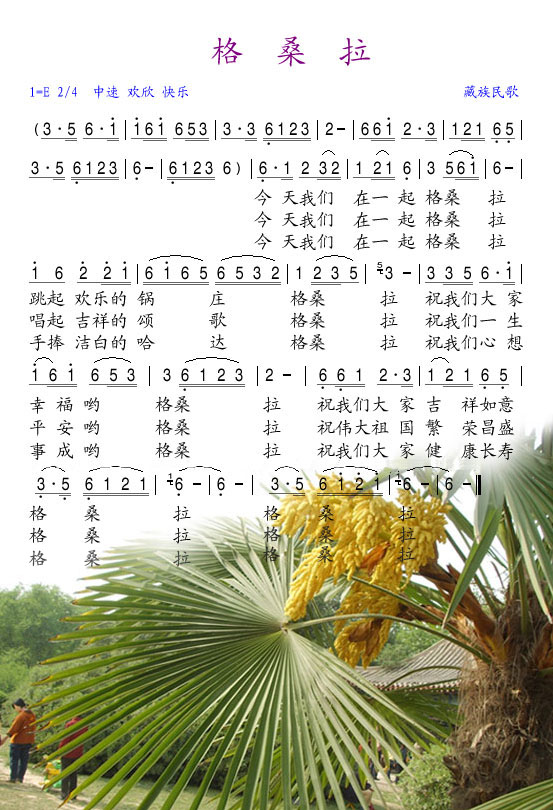 格 桑 拉
1=E 2/4 中速 欢欣 快乐 藏族民歌
(3·5 6·i | i6i 653 | 3·3 6123 | 2- | 66i 2·3 | 121 65 |
3·5 6123 | 6- | 6123 6) | 6·1 2 32 | 1 21 6 | 3 56i | 6- |
今 天我们 在一 起 格桑 拉
今 天我们 在一 起 格桑 拉
今 天我们 在一 起 格桑 拉
i 6 2 2i | 6 i 6 5 6 5 3 2 | 1 2 3 5 | 3 - | 3 3 5 6·i |
跳起 欢乐的 锅 庄 格桑 拉 祝我们大 家
唱起 吉祥的 颂 歌 格桑 拉 祝我们一 生
手捧 洁白的 哈 达 格桑 拉 祝我们心 想
i 6 i 6 5 3 | 3 6 1 2 3 | 2 - | 6 6 i 2·3 | 1 2 1 6 5 |
幸 福 哟 格桑 拉 祝我们大 家 吉 祥如意
平 安 哟 格桑 拉 祝伟大祖 国 繁 荣昌盛
事 成 哟 格桑 拉 祝我们大 家 健 康长寿
3·5 6 1 2 1 | 6 - | 6 - | 3·5 6 i 2 i | 6 - | 6 - ‖
格 桑 拉 格 桑 拉
格 桑 拉 格 桑 拉
格 桑 拉 格 桑 拉